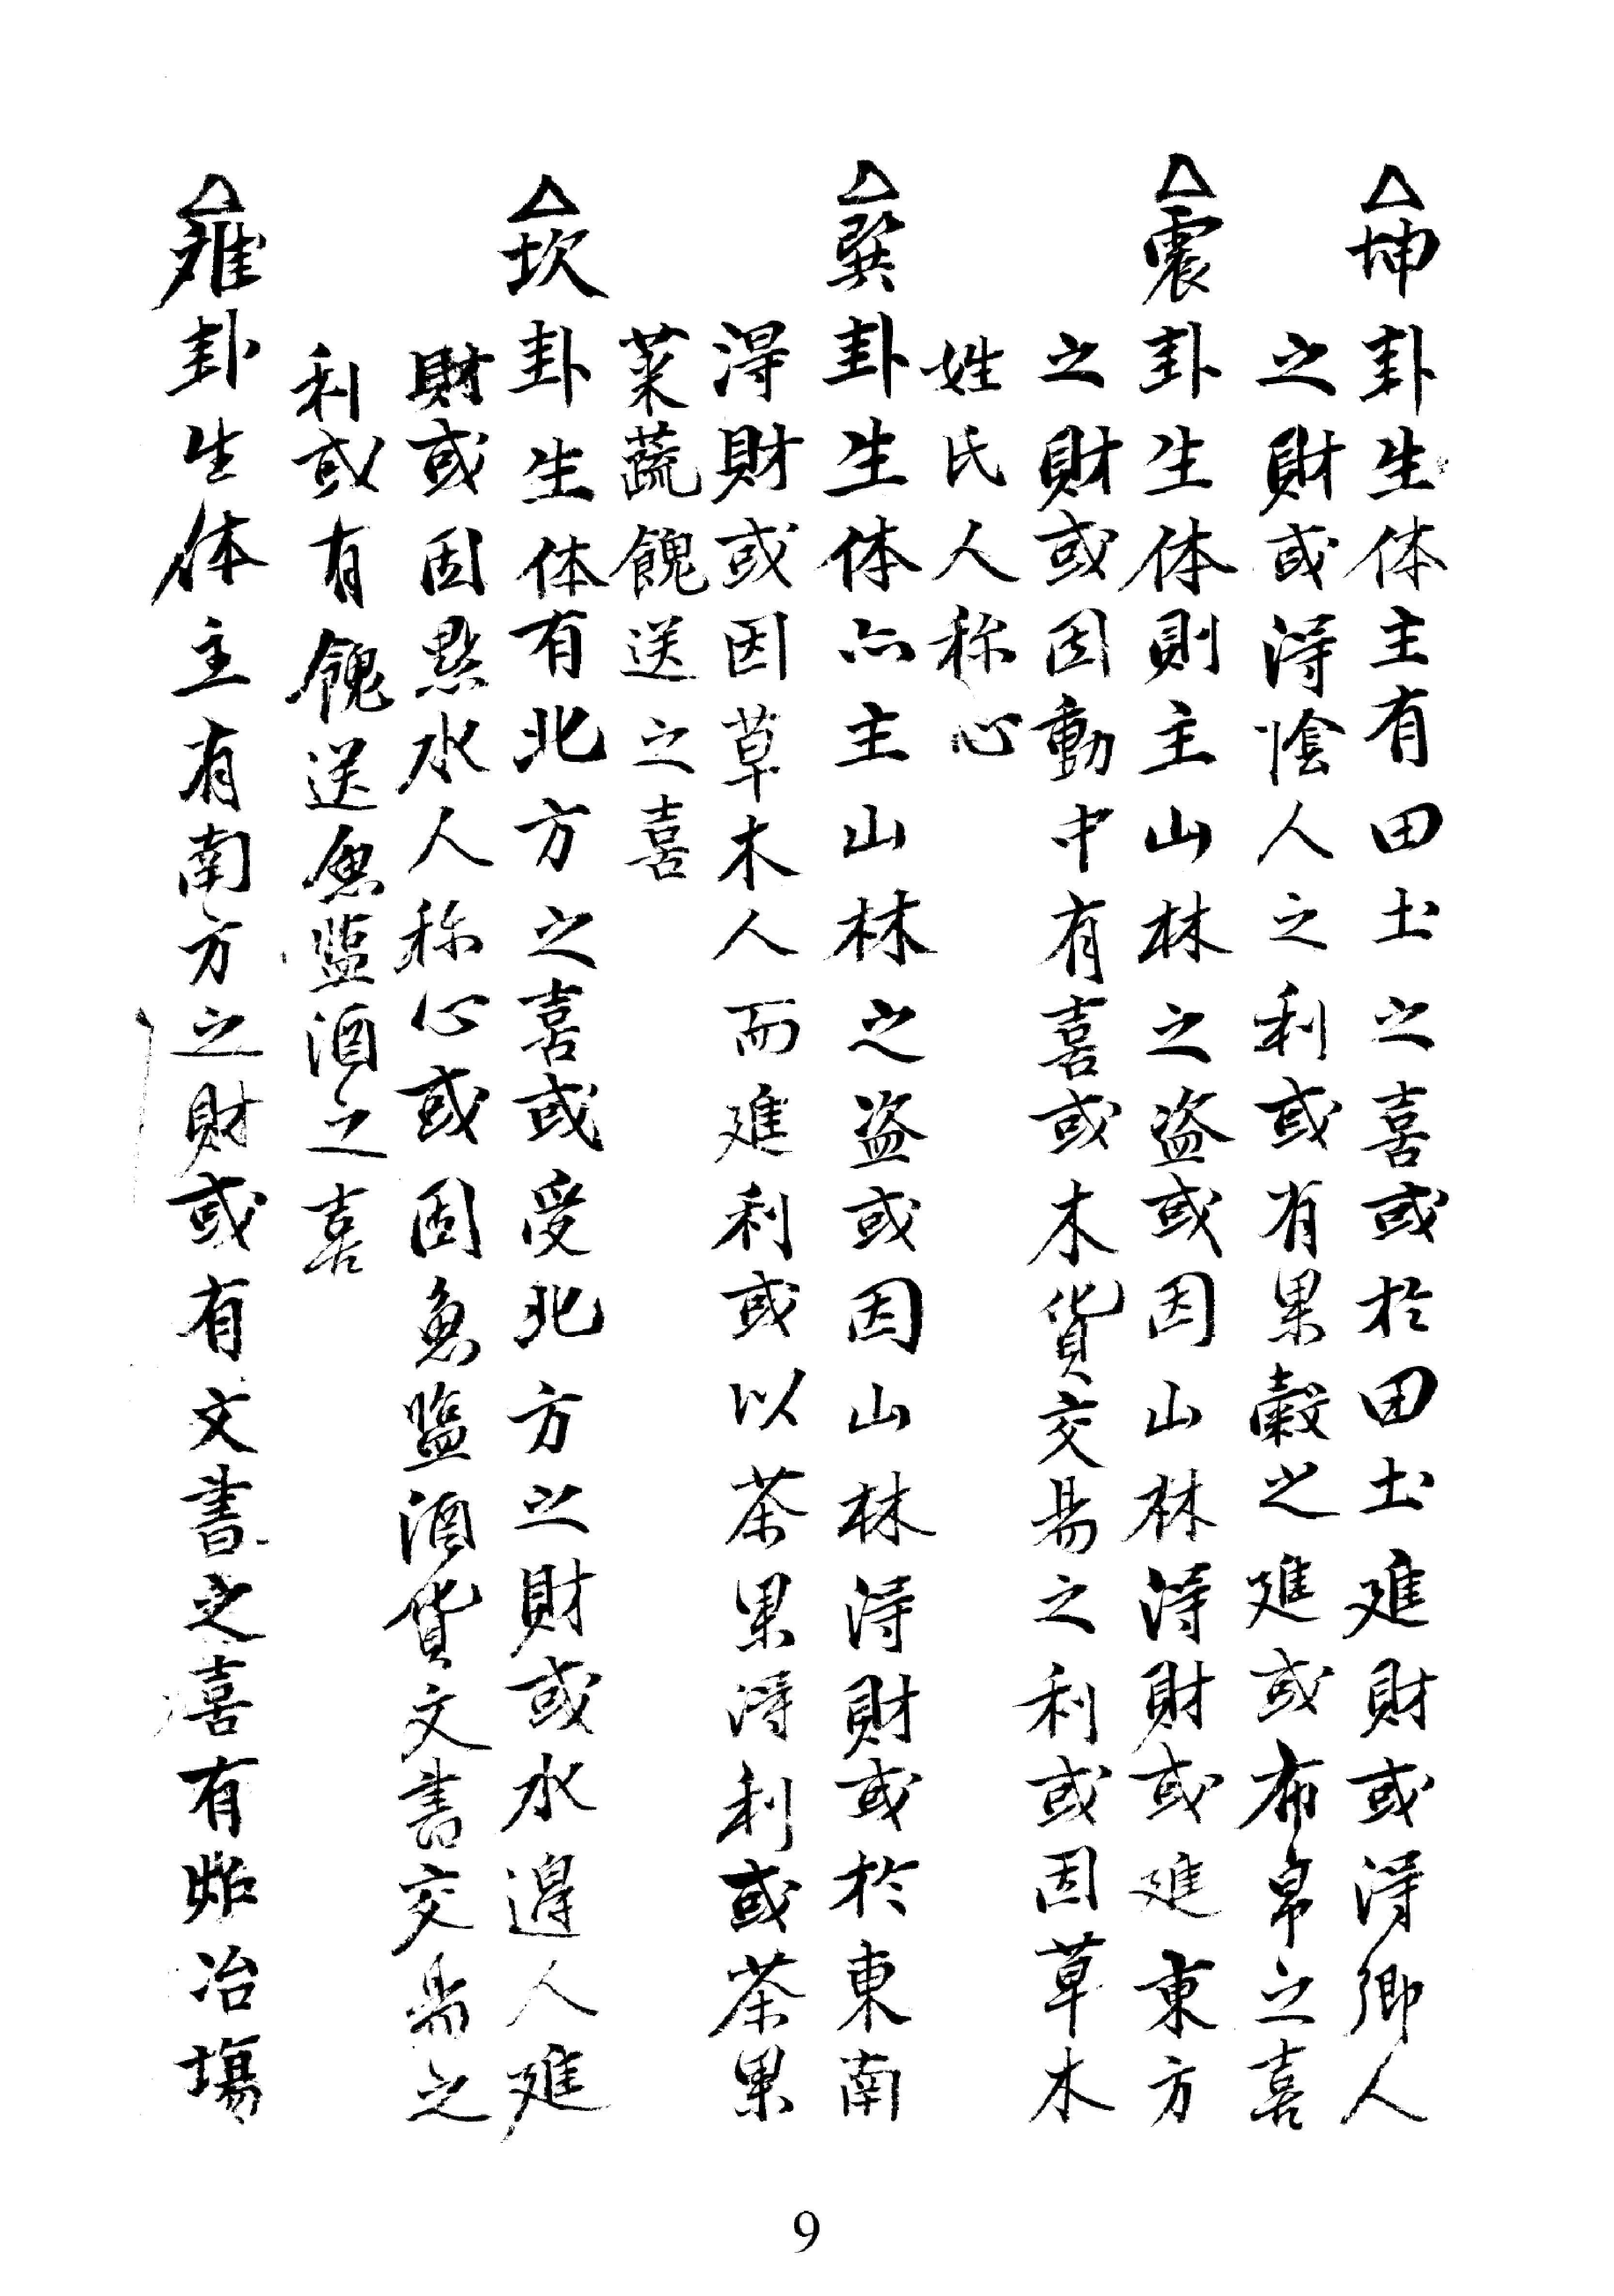 △坤卦生体主有田土之喜或於田土进財或得鄉人
之財或得陰人之利或有果穀之进或布帛之喜
△震卦生体則主山林之盗或因山林得財或进東方
之財或因動中有喜或木貨交易之利或因草木
姓氏人称心
△巽卦生体亦主山林之盗或因山林得財或於東南
得財或因草木人而进利或以茶果得利或茶果
菜蔬餽送之喜
△坎卦生体有北方之喜或受北方之財或水邊人进
財或因點水人称心或因魚盐酒貨文書交易之
利或有餽送魚盐酒之喜
△离卦生体主有南方之財或有文書之喜有炉冶塲
9